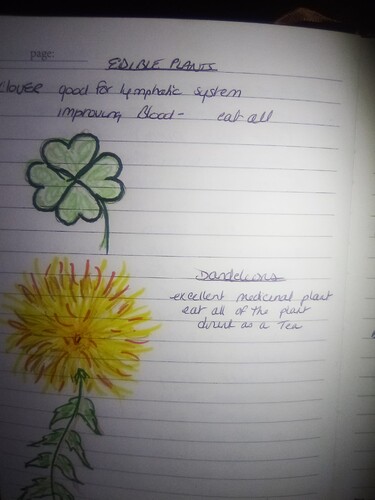 page:
EDIBLE PLANTS
Clover good for lymphatic system
improving Blood - eat all
Dandelions
excellent medicinal plant
eat all of the plant
as a Tea